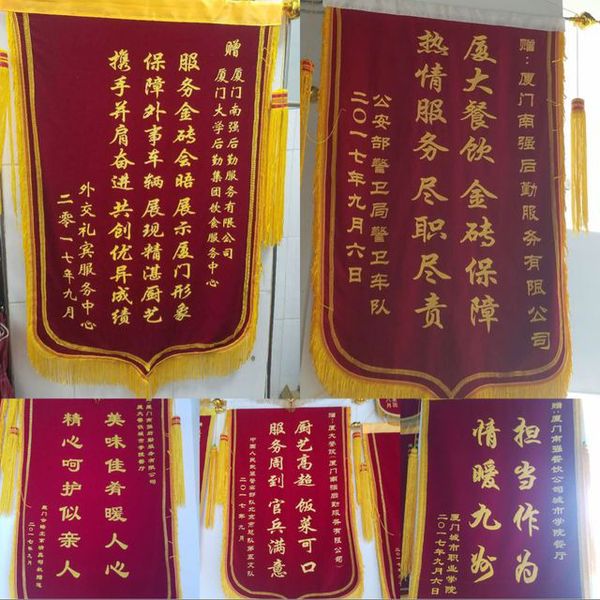 赠
厦门南强后勤服务有限公司
厦门大学后勤集团饮食服务中心
服务金砖会晤 展示厦门形象
保障外事车辆 展现精湛厨艺
携手并肩奋进 共创优异成绩
外交礼宾服务中心
二零一七年九月
赠：厦门南强后勤服务有限公司
厦大餐饮 金砖保障
热情服务 尽职尽责
公安部警卫局警卫车队
二〇一七年九月六日
厦门南强后勤服务有限公司
厦大餐饮城市学院餐厅
美味佳肴暖人心
精心呵护似亲人
二〇一七年九月
赠：厦大餐饮（厦门南强后勤服务有限公司）
厨艺高超 饭菜可口
服务周到 官兵满意
二〇一七年九月
赠：厦门南强餐饮公司城市学院餐厅
担当作为
情暖九州
厦门城市职业学院
二〇一七年九月六日